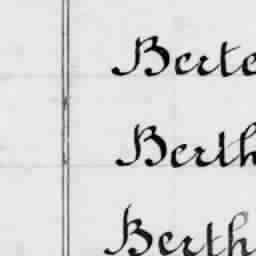 Berte
Berth
Berth